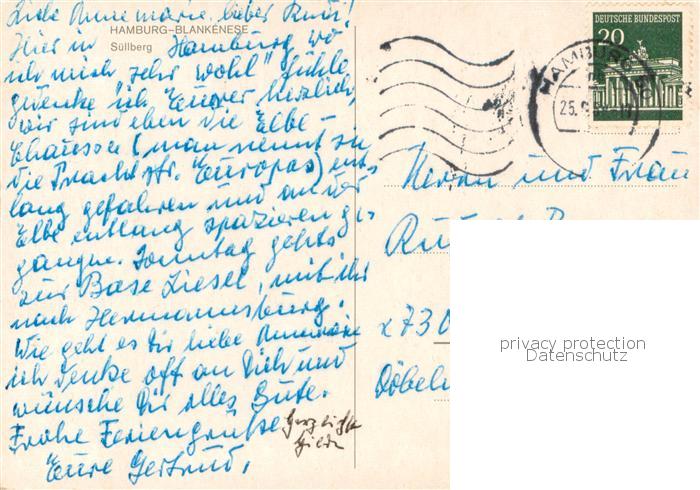 Liebe Annemarie, lieber Kurt!
HAMBURG-BLANKENESE
Süllberg
Hier in Hamburg wo
ich mich sehr wohl fühle
gedenke ich Eurer herzlich,
wir sind eben die Elbe-
Chaussee (man nennt sie
die Prachtstr. Europas) ent-
lang gefahren und an der
Elbe entlang spazieren ge-
gangen. Sonntag gehts
zur Base Liesel, mit ihr
nach Hermannsburg.
Wie geht es Dir liebe Annemarie
ich denke oft an Dich und
wünsche Dir alles Gute.
Frohe Feriengrüße
Eure Gertrud,
Herzlichst
DEUTSCHE BUNDESPOST
20
HAMBURG
25.
Herrn und Frau
x 730
Döbeln
privacy protection
Datenschutz